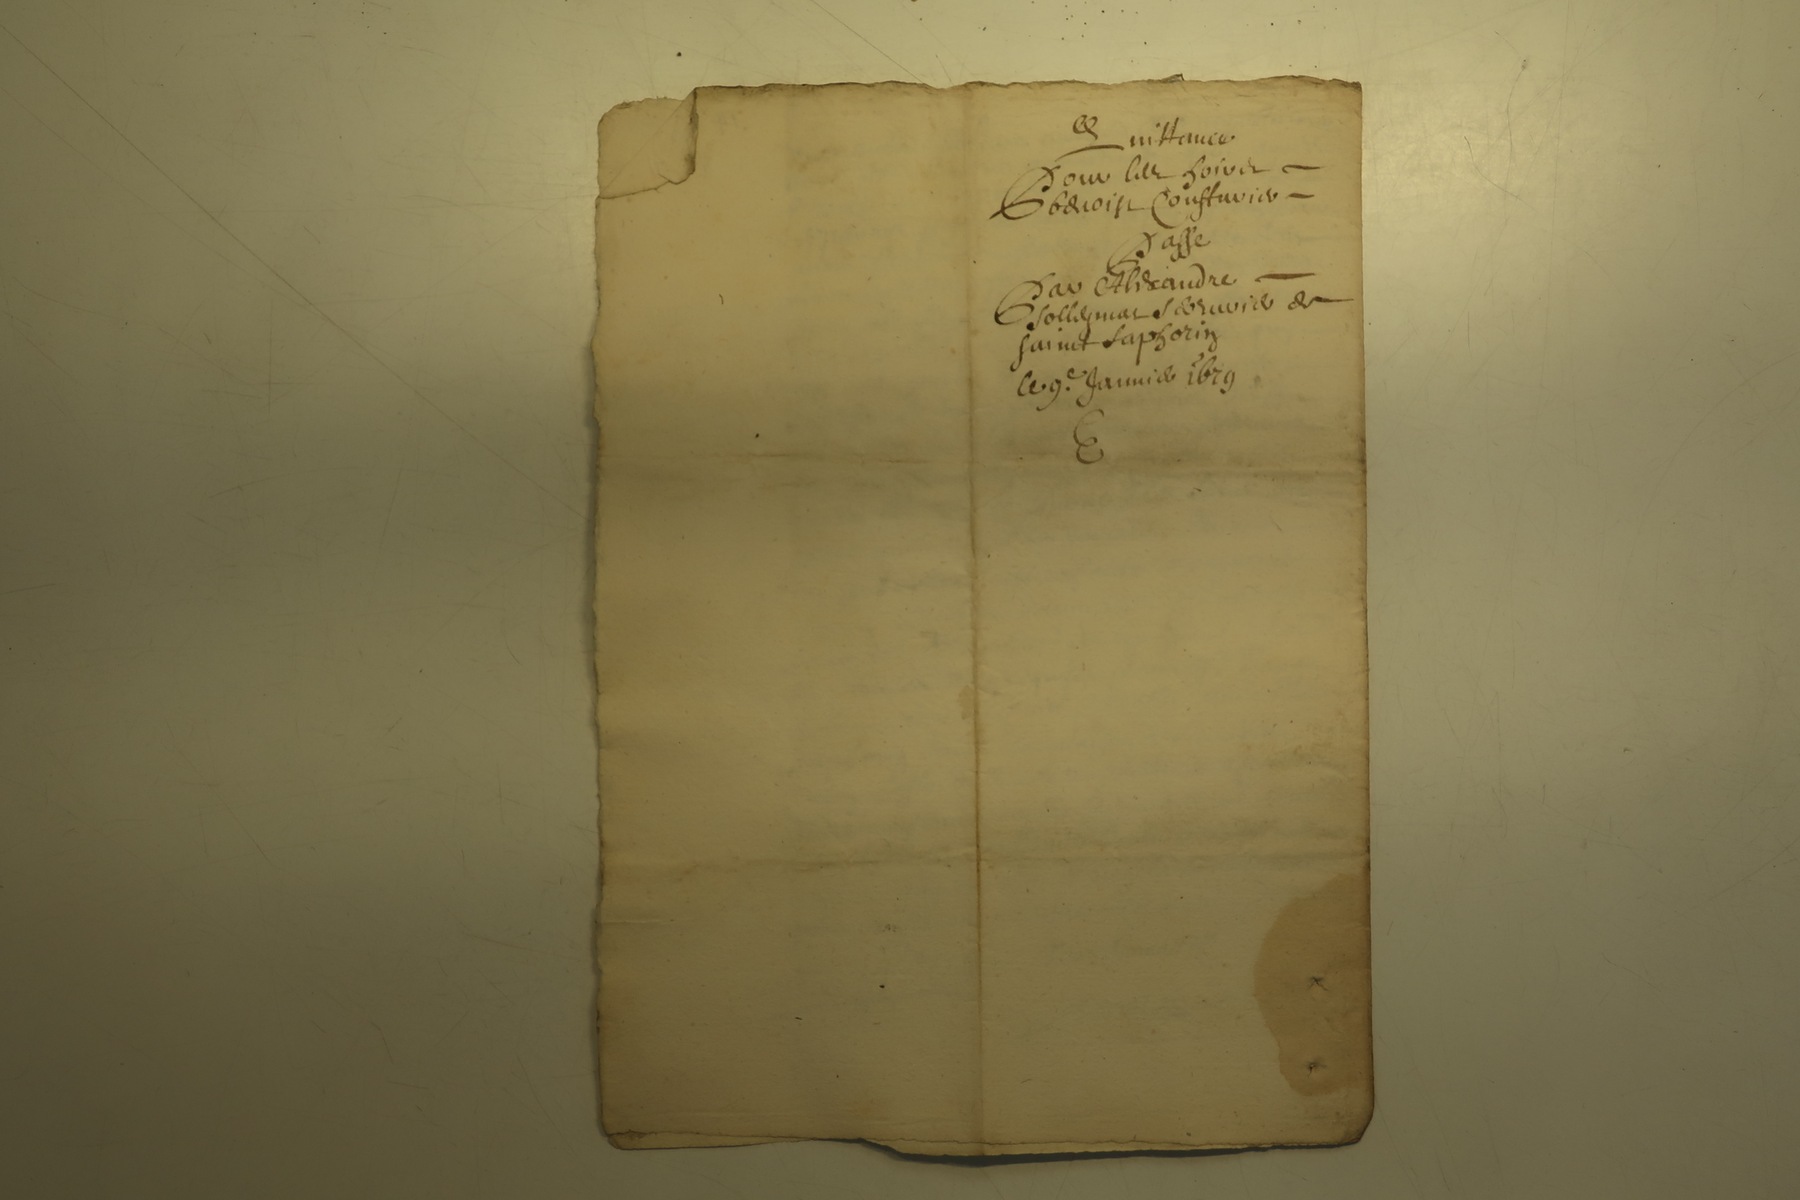 Quittance
Pour les hoirs
benoist Cousturier
Passe
Par Alexandre
de
sainct Saphorin
le 9e Janvier 1679